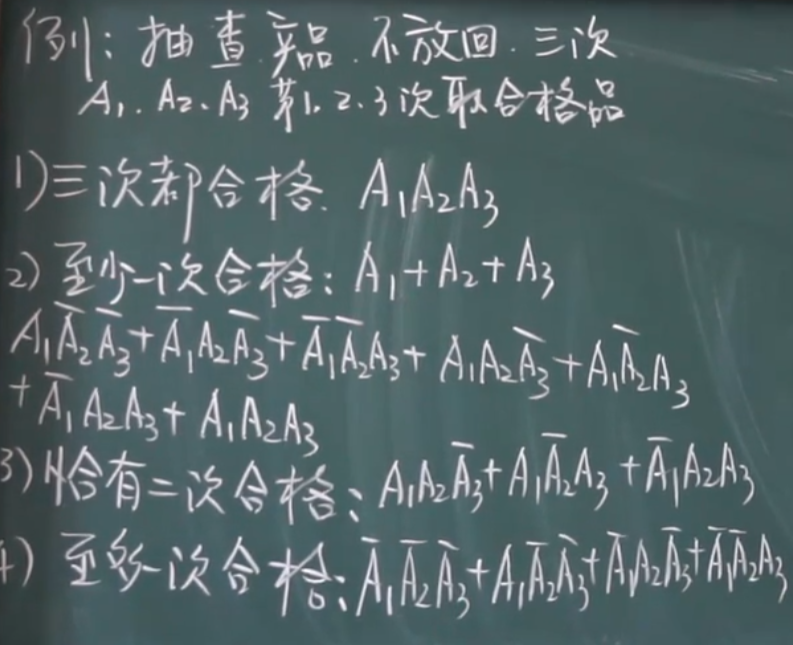 例1: 抽查产品.不放回.三次
A₁.A₂.A₃ 第1.2.3次取合格品
1)三次都合格. A₁A₂A₃
2) 至少一次合格: A₁+A₂+A₃
A₁A̅₂A̅₃+A̅₁A₂A̅₃+A̅₁A̅₂A₃+A₁A₂A̅₃+A₁A̅₂A₃
+A̅₁A₂A₃+A₁A₂A₃
3)恰有二次合格: A₁A₂A̅₃+A₁A̅₂A₃+A̅₁A₂A₃
4) 至多一次合格: A̅₁A̅₂A̅₃+A₁A̅₂A̅₃+A̅₁A₂A̅₃+A̅₁A̅₂A₃